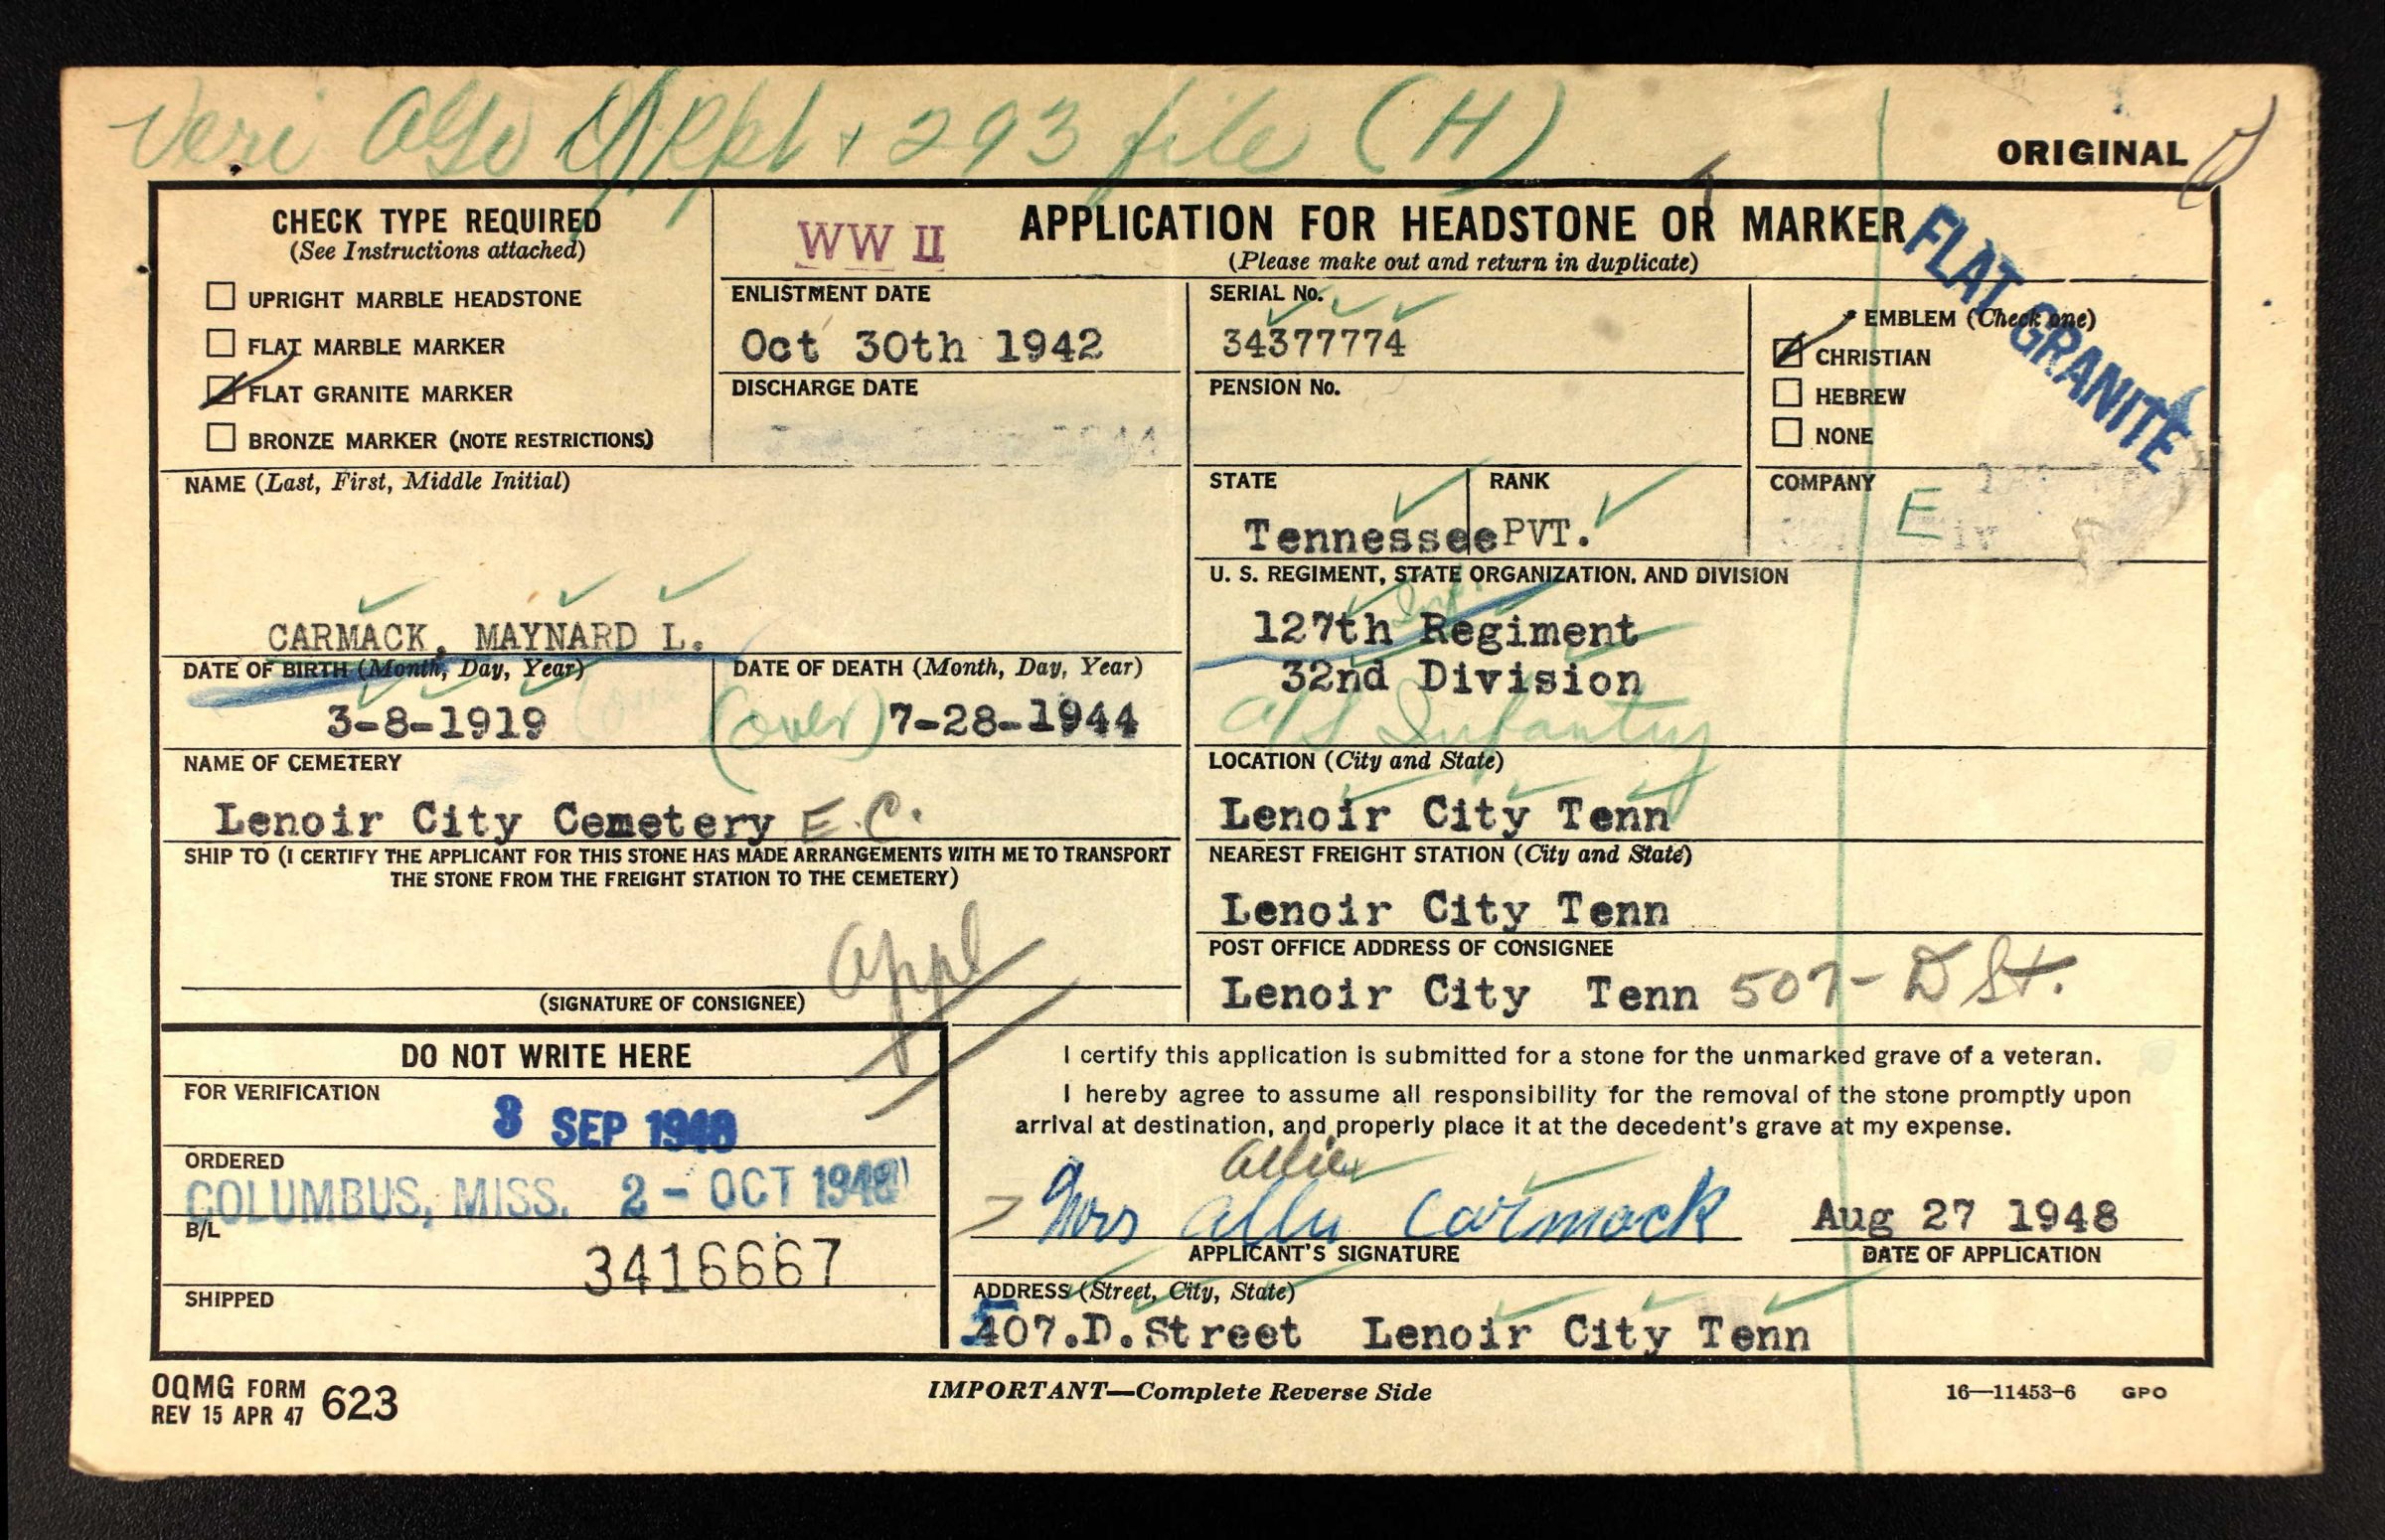 Veri AGO Appl + 293 file (H)
ORIGINAL
CHECK TYPE REQUIRED
(See Instructions attached)
UPRIGHT MARBLE HEADSTONE
FLAT MARBLE MARKER
FLAT GRANITE MARKER
BRONZE MARKER (NOTE RESTRICTIONS)
WW II
APPLICATION FOR HEADSTONE OR MARKER
(Please make out and return in duplicate)
FLAT GRANITE
ENLISTMENT DATE
Oct 30th 1942
SERIAL No.
34377774
DISCHARGE DATE
PENSION No.
EMBLEM (Check one)
CHRISTIAN
HEBREW
NONE
NAME (Last, First, Middle Initial)
CARMACK, MAYNARD L.
STATE
Tennessee
RANK
PVT.
COMPANY
E
U. S. REGIMENT, STATE ORGANIZATION, AND DIVISION
Inf.
127th Regiment
32nd Division
a/s Infantry
DATE OF BIRTH (Month, Day, Year)
3-8-1919
DATE OF DEATH (Month, Day, Year)
(over) 7-28-1944
NAME OF CEMETERY
Lenoir City Cemetery E.C.
LOCATION (City and State)
Lenoir City Tenn
SHIP TO (I CERTIFY THE APPLICANT FOR THIS STONE HAS MADE ARRANGEMENTS WITH ME TO TRANSPORT
THE STONE FROM THE FREIGHT STATION TO THE CEMETERY)
appl
(SIGNATURE OF CONSIGNEE)
NEAREST FREIGHT STATION (City and State)
Lenoir City Tenn
POST OFFICE ADDRESS OF CONSIGNEE
Lenoir City Tenn 507- D St.
DO NOT WRITE HERE
FOR VERIFICATION
3 SEP 1948
ORDERED
COLUMBUS, MISS. 2 - OCT 1948
B/L
3416667
SHIPPED
I certify this application is submitted for a stone for the unmarked grave of a veteran.
I hereby agree to assume all responsibility for the removal of the stone promptly upon
arrival at destination, and properly place it at the decedent's grave at my expense.
Allie
Mrs Allie Carmack
APPLICANT'S SIGNATURE
Aug 27 1948
DATE OF APPLICATION
ADDRESS (Street, City, State)
507.D.Street Lenoir City Tenn
OQMG FORM 623
REV 15 APR 47
IMPORTANT—Complete Reverse Side
16—11453-6 GPO